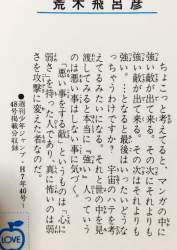 荒木飛呂彦
ちょこっと考えてると、マンガの中に
強い敵が出て来る。その次はそれよりも
強い敵が出て来る。その次はそれよりも
強い…となると最後はいったいどうな
っちゃうわけ？宇宙
えるみたいになって、そこで世の中を見
渡してみると本当に「強い」人っていう
のは悪い事はしない事に気づく。
「悪い事をする敵」というものは「心に
弱さ」を持った人であり、真に怖いのは弱
さを攻撃に変えた者なのだ。
●週刊少年ジャンプ・H7年40号〜
48号掲載分収録
LOVE